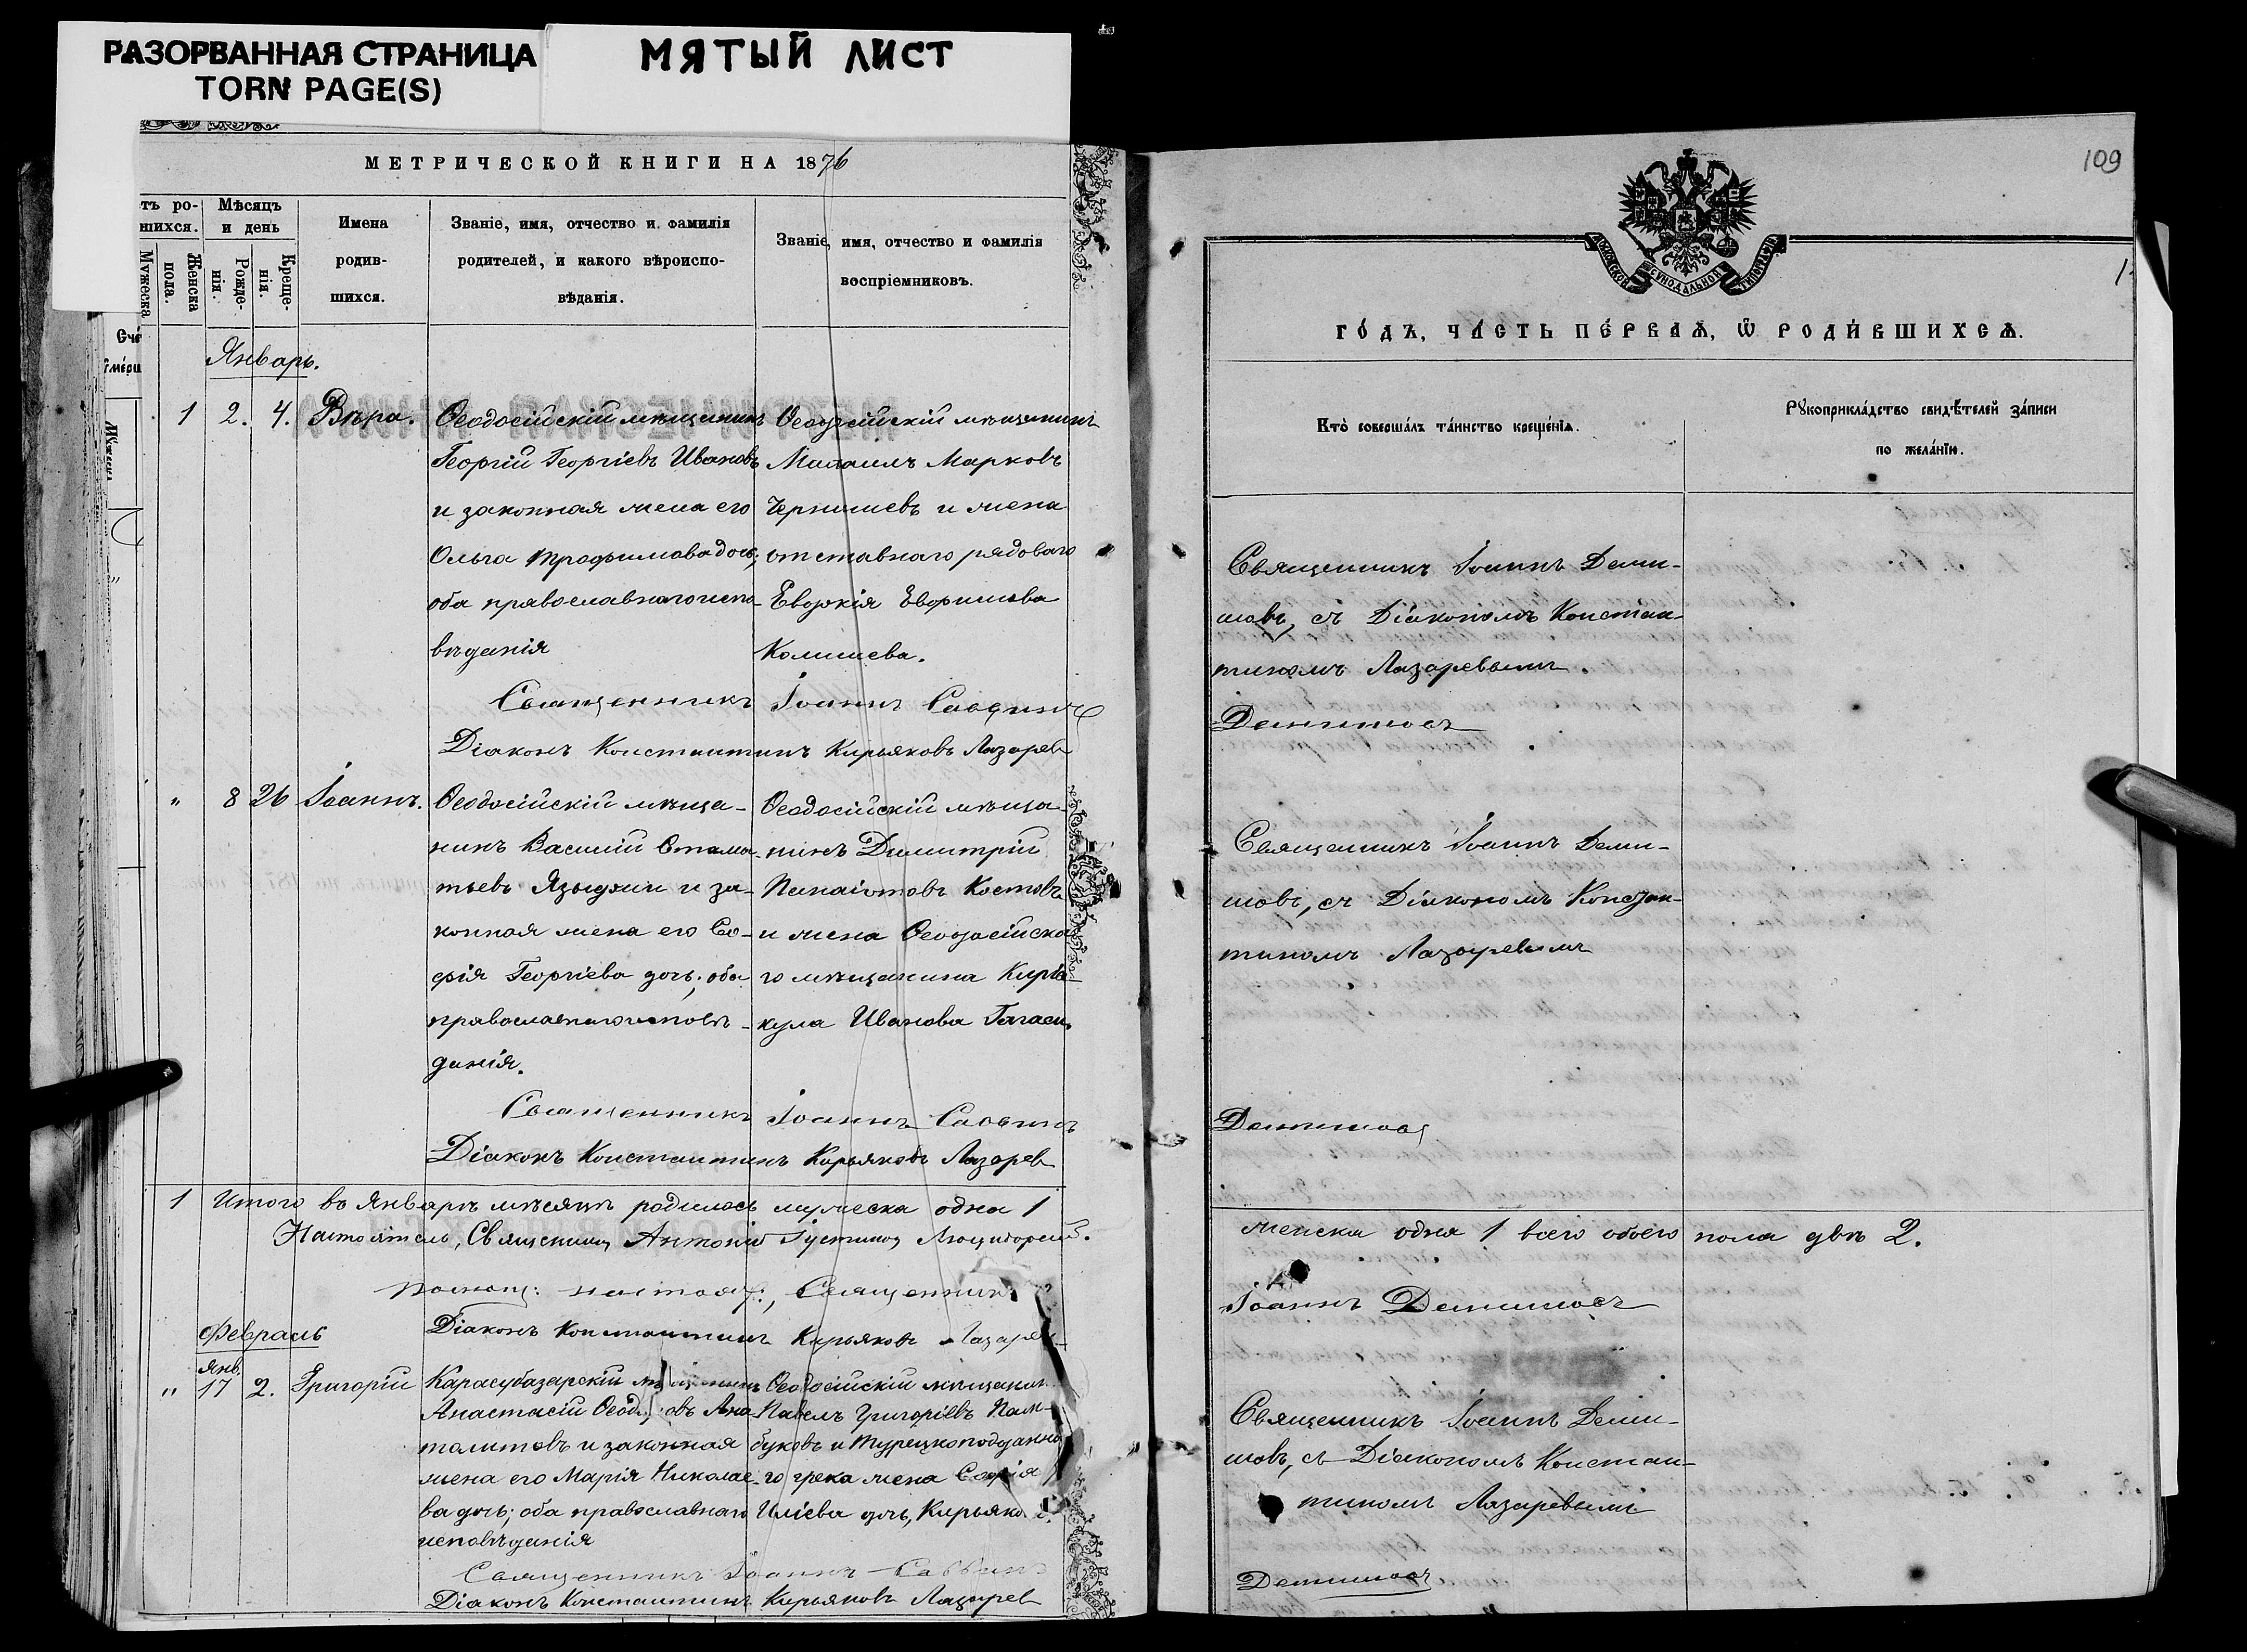 РАЗОРВАННАЯ СТРАНИЦА
TORN PAGE(S)
МЯТЫЙ ЛИСТ
МЕТРИЧЕСКОЙ КНИГИ НА 1876
тъ ро-
шихся.
Мужеска
Женска
пола.
Мѣсяцъ
и день
Рожде-
нія.
Креще-
нія.
Имена
родив-
шихся.
Званіе, имя, отчество и фамилія
родителей, и какого вѣроиспо-
вѣданія.
Званіе, имя, отчество и фамилія
воспріемниковъ.
Январь.
1 2. 4. Вѣра.
Ѳеодосійскій мѣщанинъ
Георгій Георгіевъ Ивановъ
и законная жена его
Ольга Трофимова дочь;
оба православнаго испо-
вѣданія
Ѳеодосійскій мѣщанинъ
Михаилъ Марковъ
Чернышевъ и жена
отставнаго рядоваго
Евдокія
Священникъ Іоаннъ Саввинъ
Діаконъ Константинъ Кирьяковъ Лазарев
" 8 26 Іоаннъ.
Ѳеодосійскій мѣща-
нинъ Василій Стама-
тьевъ и за-
конная жена его Со-
фія Георгіева дочь; оба
православнаго исповѣ-
данія.
Ѳеодосійскій мѣща-
нинъ Димитрій
Панаіотовъ Костовъ
и жена Ѳеодосійска-
го мѣщанина Киріа-
кула Иванова
Священникъ Іоаннъ Саввинъ
Діаконъ Константинъ Кирьяковъ Лазарев
1 Итого въ Январѣ мѣсяцѣ родилось мужеска одна 1
Настоятель, Священникъ Антоній
помощ: настоят:, Священникъ
Діаконъ Константинъ Кирьяковъ Лазарев
Февраль
Янв.
" 17 2. Григорій
Карасубазарскій
Анастасій Ана-
толитовъ и законная
жена его Марія Николае-
ва дочь; оба православнаго
исповѣданія
Ѳеодосійскій мѣщанин
Павелъ Григоріевъ Пам-
буковъ и Турецкоподданна-
го грека жена Софія
Иліева дочь,
Священникъ Іоаннъ Саввинъ
Діаконъ Константинъ Кирьяковъ Лазарев
109
МОСКОВСКОЙ СѴНОДАЛЬНОЙ ТИПОГРАФІИ
ГО́ДЪ, ЧА́СТЬ ПЕ́РВАѦ, Ѿ РОДИ́ВШИХСѦ.
Кто̀ соверша́лъ та́инство креще́нїѧ.
Рꙋкоприкла́дство свидѣ́телей за́писи
по жела́нїю.
Священникъ Іоаннъ Деми-
шовъ, съ Діакономъ Констан-
тиномъ Лазаревымъ.
Демишовъ
Священникъ Іоаннъ Деми-
шовъ, съ Діакономъ Констан-
тиномъ Лазаревымъ
Демишовъ
женска одна 1 всего обоего пола двѣ 2.
Іоаннъ Демишовъ
Священникъ Іоаннъ Деми-
шовъ, съ Діакономъ Констан-
тиномъ Лазаревымъ
Демишовъ